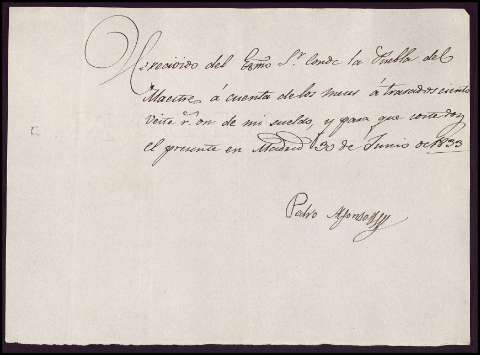 He recivido del Exmo Sr. Conde la Puebla del
Maestre á cuenta de los meses á trasados ciento
Veite rs. on de mi sueldo, y para que conste doy
el presente en Madrid 30 de Junio de 1833
Pedro Alfonso